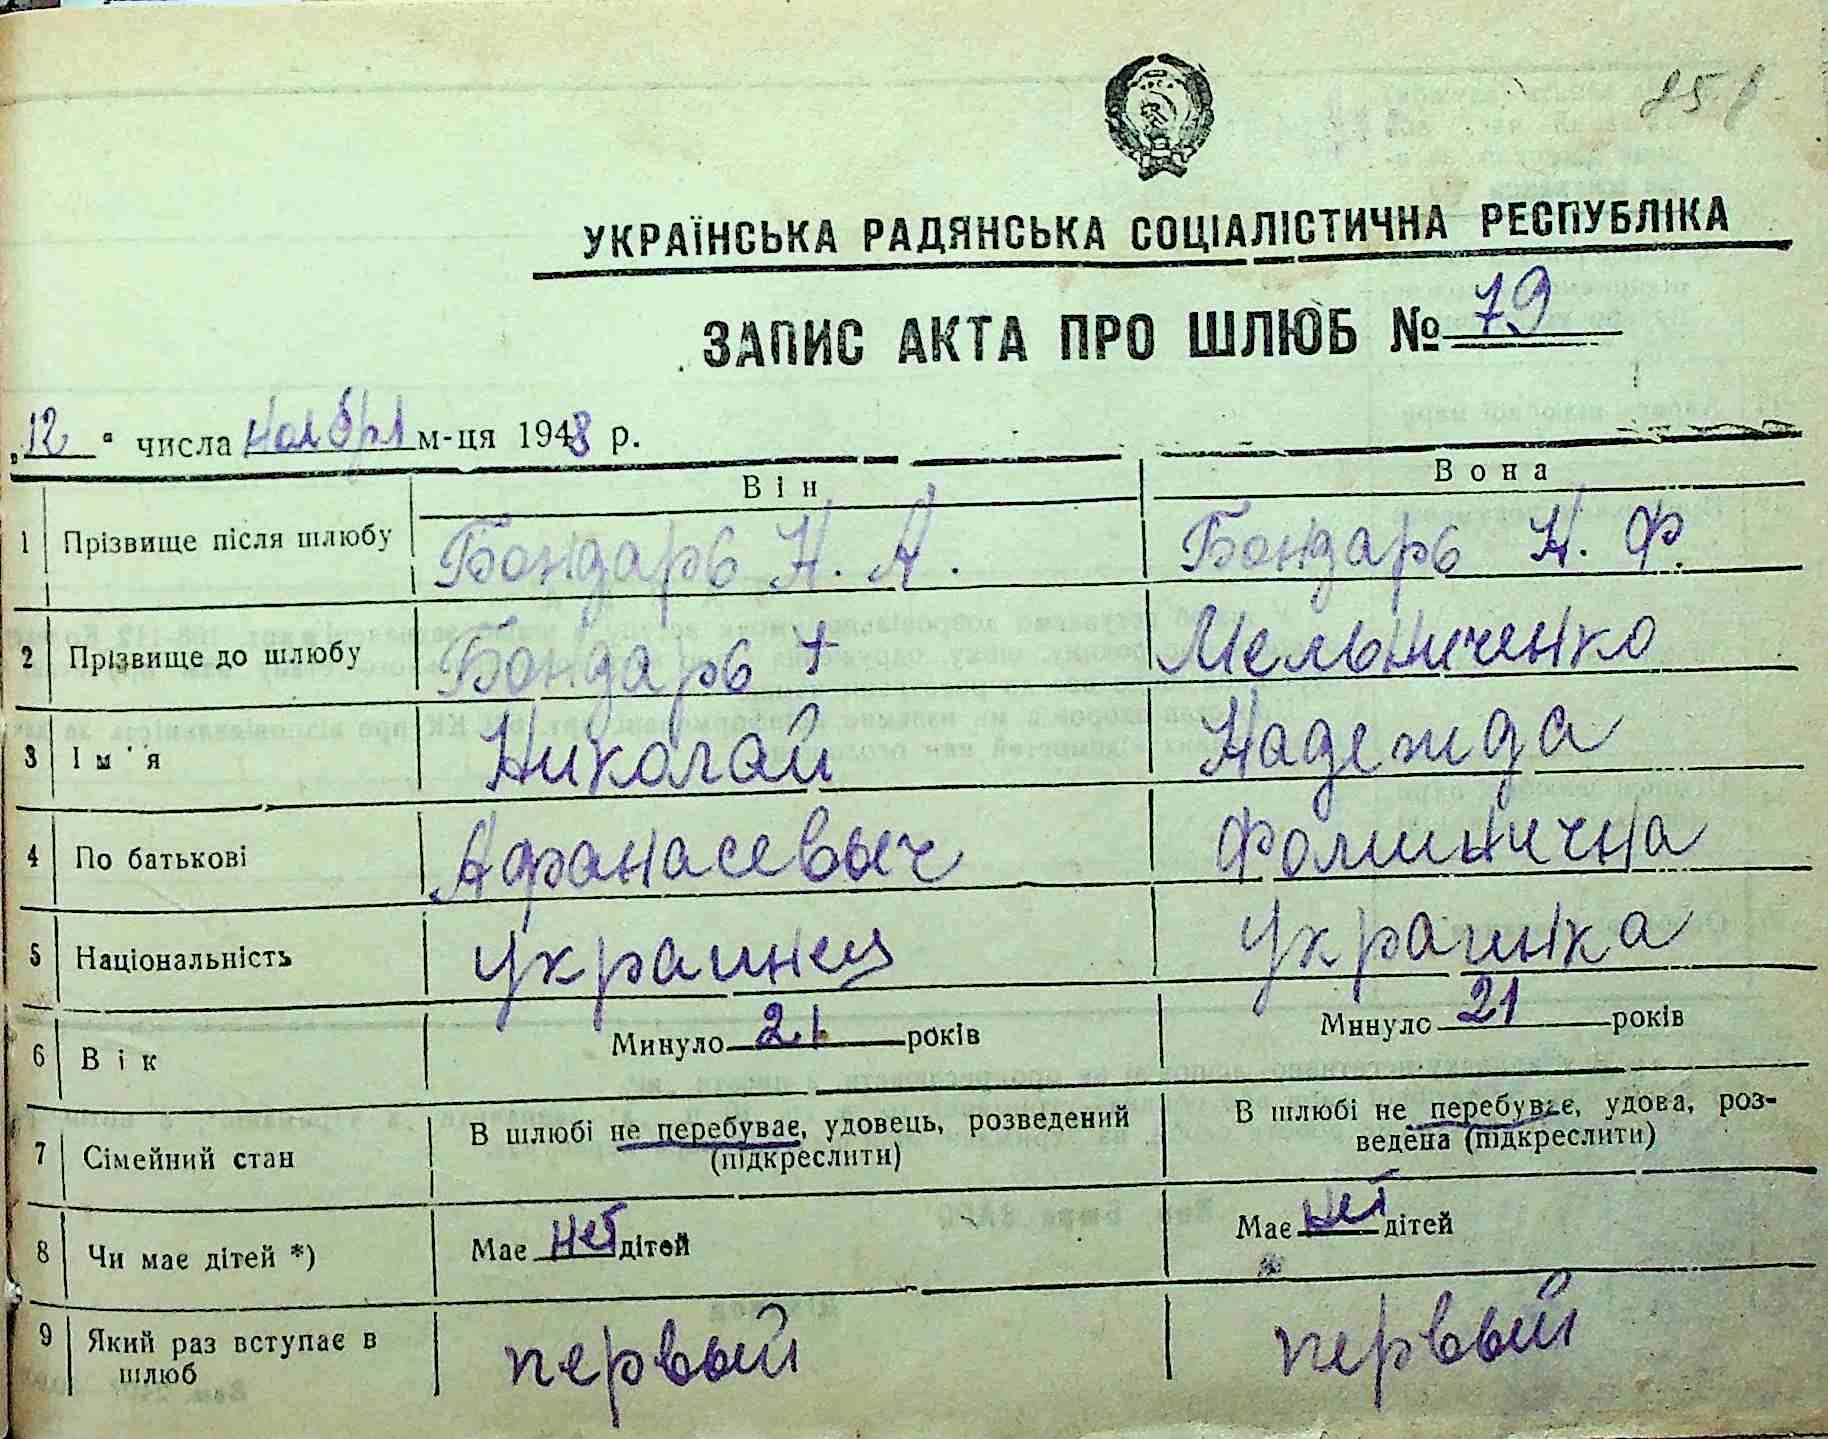 УКРАЇНСЬКА РАДЯНСЬКА СОЦІАЛІСТИЧНА РЕСПУБЛІКА
ЗАПИС АКТА ПРО ШЛЮБ № 79
„12“ числа ноября м-ця 1948 р.
Він Вона
1 Прізвище після шлюбу Бондарь Н. А. Бондарь Н. Ф.
2 Прізвище до шлюбу Бондарь + Мельниченко
3 Ім'я Николай Надежда
4 По батькові Афанасевыч Фоминична
5 Національність украинец украинка
6 Вік Минуло 21 років Минуло 21 років
7 Сімейний стан В шлюбі не перебуває, удовець, розведений (підкреслити) В шлюбі не перебуває, удова, роз-
ведена (підкреслити)
8 Чи має дітей *) Має нет дітей Має нет дітей
9 Який раз вступає в шлюб первый первый